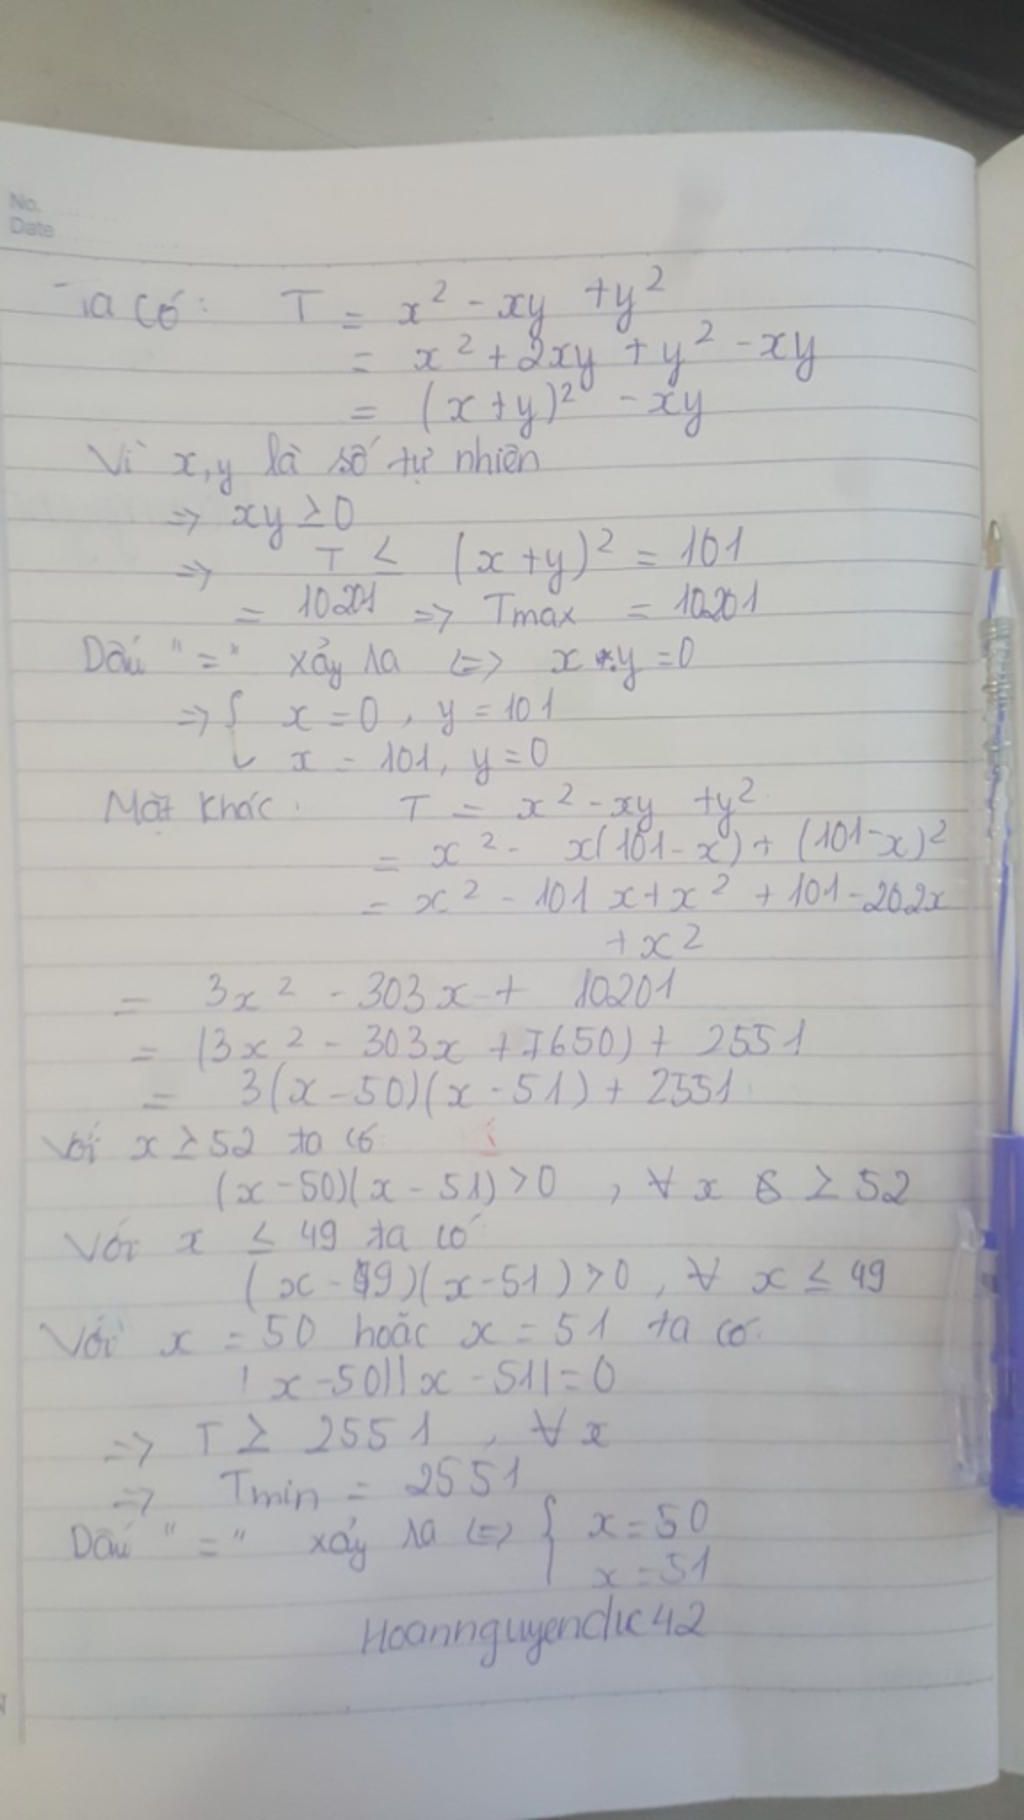 No.
Date
Ta có: T = x² - xy + y²
= x² + 2xy + y² - xy
= (x + y)² - xy
Vì x, y là số tự nhiên
=> xy ≥ 0
=> T ≤ (x + y)² = 101
= 10201 => Tmax = 10201
Dấu "=" xảy ra <=> x.y = 0
=> { x = 0, y = 101
x = 101, y = 0
Mặt khác: T = x² - xy + y²
= x² - x(101 - x) + (101 - x)²
= x² - 101x + x² + 101 - 202x
+ x²
= 3x² - 303x + 10201
= (3x² - 303x + 7650) + 2551
= 3(x - 50)(x - 51) + 2551
Với x ≥ 52 ta có
(x - 50)(x - 51) > 0, ∀ x ≥ 52
Với x ≤ 49 ta có
(x - 49)(x - 51) > 0, ∀ x ≤ 49
Với x = 50 hoặc x = 51 ta có:
(x - 50)(x - 51) = 0
=> T ≥ 2551, ∀ x
=> Tmin = 2551
Dấu "=" xảy ra <=> { x = 50
x = 51
Hoannguyenduc42